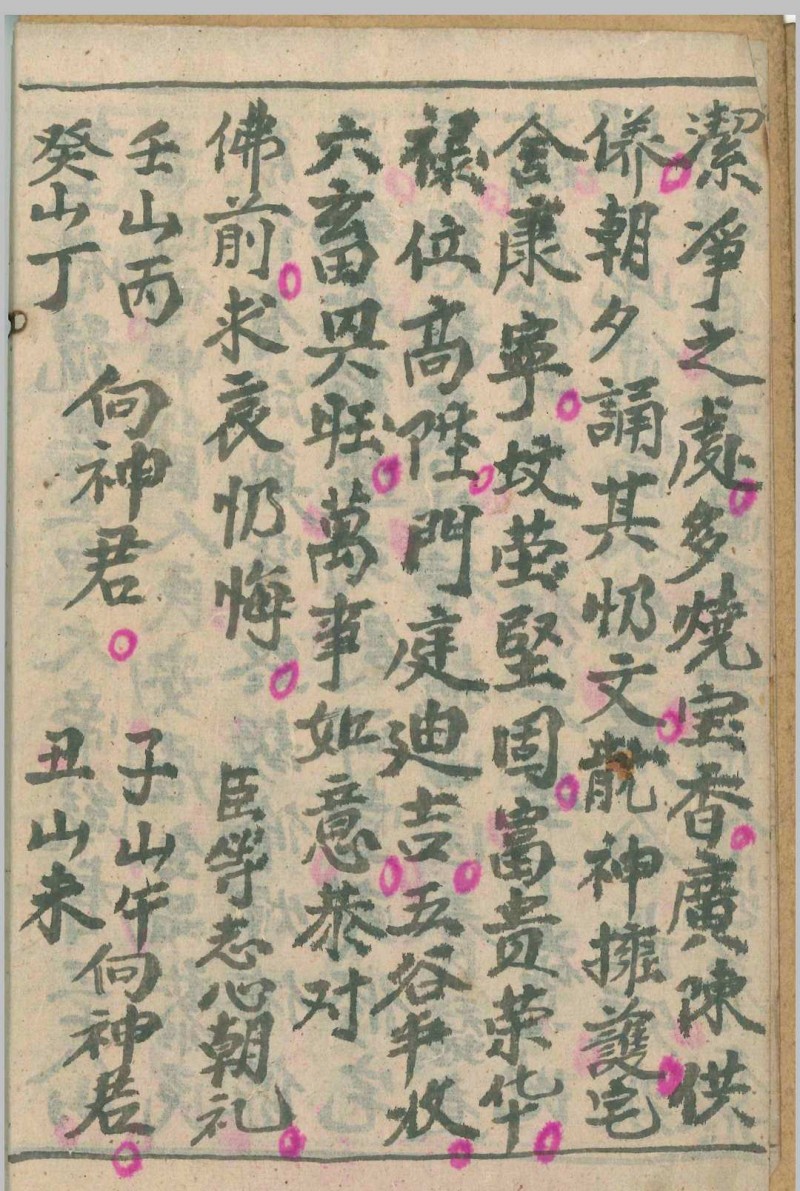 潔凈之處多燒宝香廣陳供
养朝夕誦其忏文龍神擁護宅
舍康寧坟茔堅固富贵荣华
禄位高陞門庭迪吉五谷丰收
六畜興旺萬事如意恭对
佛前求哀忏悔 臣等志心朝礼
壬山丙 癸山丁 向神君 子山午 丑山未 向神君